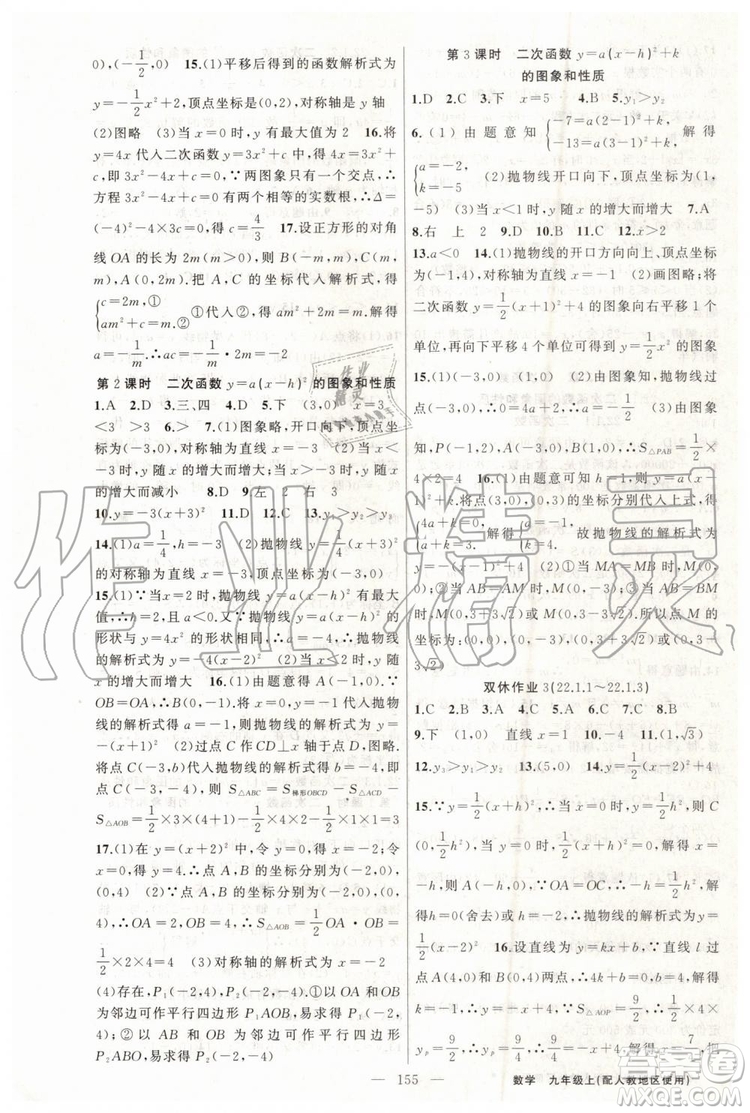 0),(-1/2,0) 15.(1)平移后得到的函数解析式为
y=-1/2x²+2,顶点坐标是(0,2),对称轴是 y 轴
(2)图略 (3)当 x=0 时,y 有最大值为 2 16.将
y=4x 代入二次函数 y=3x²+c,得 4x=3x²+c,
即 3x²-4x+c=0,∵两图象只有一个交点,∴
方程 3x²-4x+c=0 有两个相等的实数根,∴Δ=
(-4)²-4×3c=0,得 c=4/3 17.设正方形的对角
线 OA 的长为 2m(m>0),则 B(-m,m),C(m,
m),A(0,2m).把 A,C 的坐标代入解析式,得
{c=2m,① am²+c=m,② ①代入②得:am²+2m=m,解得:
a=-1/m.∴ac=-1/m·2m=-2
第 2 课时 二次函数 y=a(x-h)² 的图象和性质
1.A 2.D 3.三、四 4.D 5.下 (3,0) x=3
<3 >3 6.> 7.(1)图象略,开口向下,顶点为
(-3,0),对称轴为直线 x=-3 (2)当 x<
-3 时,y 随 x 的增大而增大;当 x>-3 时,y 随 x
的增大而减小 8.D 9.左 2 右 3
10.y=-3(x+3)² 11.D 12.C 13.y₁>y₂>y₃
14.(1)a=1/4,h=-3 (2)抛物线 y=1/4(x+3)²
的对称轴为直线 x=-3,顶点坐标为(-3,0)
15.(1)∵当 x=2 时,有最大值,∴h=2,且开口向
下且 a<0.又∵此抛物线 y=a(x-h)² 的
形状与 y=4x² 的形状相同,∴a=-4,∴抛物线
的解析式为 y=-4(x-2)² (2)当 x<2 时,y
随 x 的增大而增大 16.(1)由题意得 a=-1.∵
OB=OA,∴B(0,-1),把 B(0,-1)代入抛物线
的解析式得 a=-1,∴抛物线的解析式为 y=
-(x+1)² (2)过点 C 作CD⊥x 轴于点 D,图略.
将点 C(-3,b)代入抛物线的解析式得 b=-4,即
点 C(-3,-4),则 S△ABC=S梯形OBCD-S△ACD-
S△AOB=1/2×3×(4+1)-1/2×4×2-1/2×1×1=3
17.(1)在 y=(x+2)² 中,令 y=0,得 x=-2;令
x=0,得 y=4,∴点 A,B 的坐标分别为(-2,0),
(0,4) (2)∵点 A,B 的坐标分别为(-2,0),(0,
4),∴OA=2,OB=4,∴S△AOB=1/2OA·OB=
1/2×2×4=4 (3)对称轴为直线 x=-2
(4)存在,P₁(-2,4),P₂(-2,-4).①以 OA 和 OB
为邻边可作平行四边形 P₁AOB,易求得 P₁(-2,
4);②以 AB 和 OB 为邻边可作平行四边形
P₂ABO,易求得 P₂(-2,-4)
第 3 课时 二次函数 y=a(x-h)²+k
的图象和性质
1.D 2.C 3.下 x=5 4.B 5.y₁>y₂
6.(1)由题意知{-5=a(2-1)²+k, -13=a(3-1)²+k, 解得
{a=-2, k=-5. (2)抛物线开口向下,顶点坐标为(1,
-5) (3)x<1 时,y 随 x 的增大而增大 7.A
8.右 上 2 9.D 10.B 11.C 12.x>2
13.a<0 14.(1)抛物线的开口方向向上、顶点坐
标为(-1,1)、对称轴为直线 x=-1 (2)画图略;将
二次函数 y=1/2(x+1)²+4的图象向右平移 1 个
单位,再向下平移 4 个单位可得到 y=1/2x² 的图象
15.(1)(-2,0) (2)∵抛物线的顶点坐标为(-2,
4),∴0=4a+4,解得 a=-1 (3)由抛物线对称性
知,P(-2,4),A(0,0),B(-4,0),∴S△PAB=1/2×
4×2=4 16.(1)由题意可设抛物线的解析式为
y=a(x-2)²+k,把(1,0),(0,3)的坐标分别代入上式,
得{a+k=0, 4a+k=3, 解得{a=1, k=-1, 故抛物线的解析式为
y=(x-2)²-1 (2)①当 MA=MB 时,M(0,
0);②当 AB=AM 时,M(0,-3);③当 AB=BM
时,M(0,3+3√2)或 M(0,3-3√2),所以点 M 的
坐标为:(0,0)或(0,-3)或(0,3+3√2)或(0,3-
3√2)
双休作业 3(22.1.1~22.1.3)
1.C 2.B 3.A 4.D 5.A 6.C 7.C 8.B
9.下 (1,0) 直线 x=1 10.-4 11.(1,√3)
12.y₃>y₁>y₂ 13.-2 14.y=-1/2(x+2)²+4
15.∵y=1/2(x-h)²,∴当 x=0 时,y=1/2h²,∴C
(0,1/2h²),∵A(h,0),∵OA=OC,∴h=1/2h²,解得
h=0(舍去)或 h=2,∴抛物线的解析式为 y=
1/2(x-2)² 16.设直线为 y=kx+b,∵直线 l 过
点 A(4,0)和 B(0,4)两点,∴y=-x+4